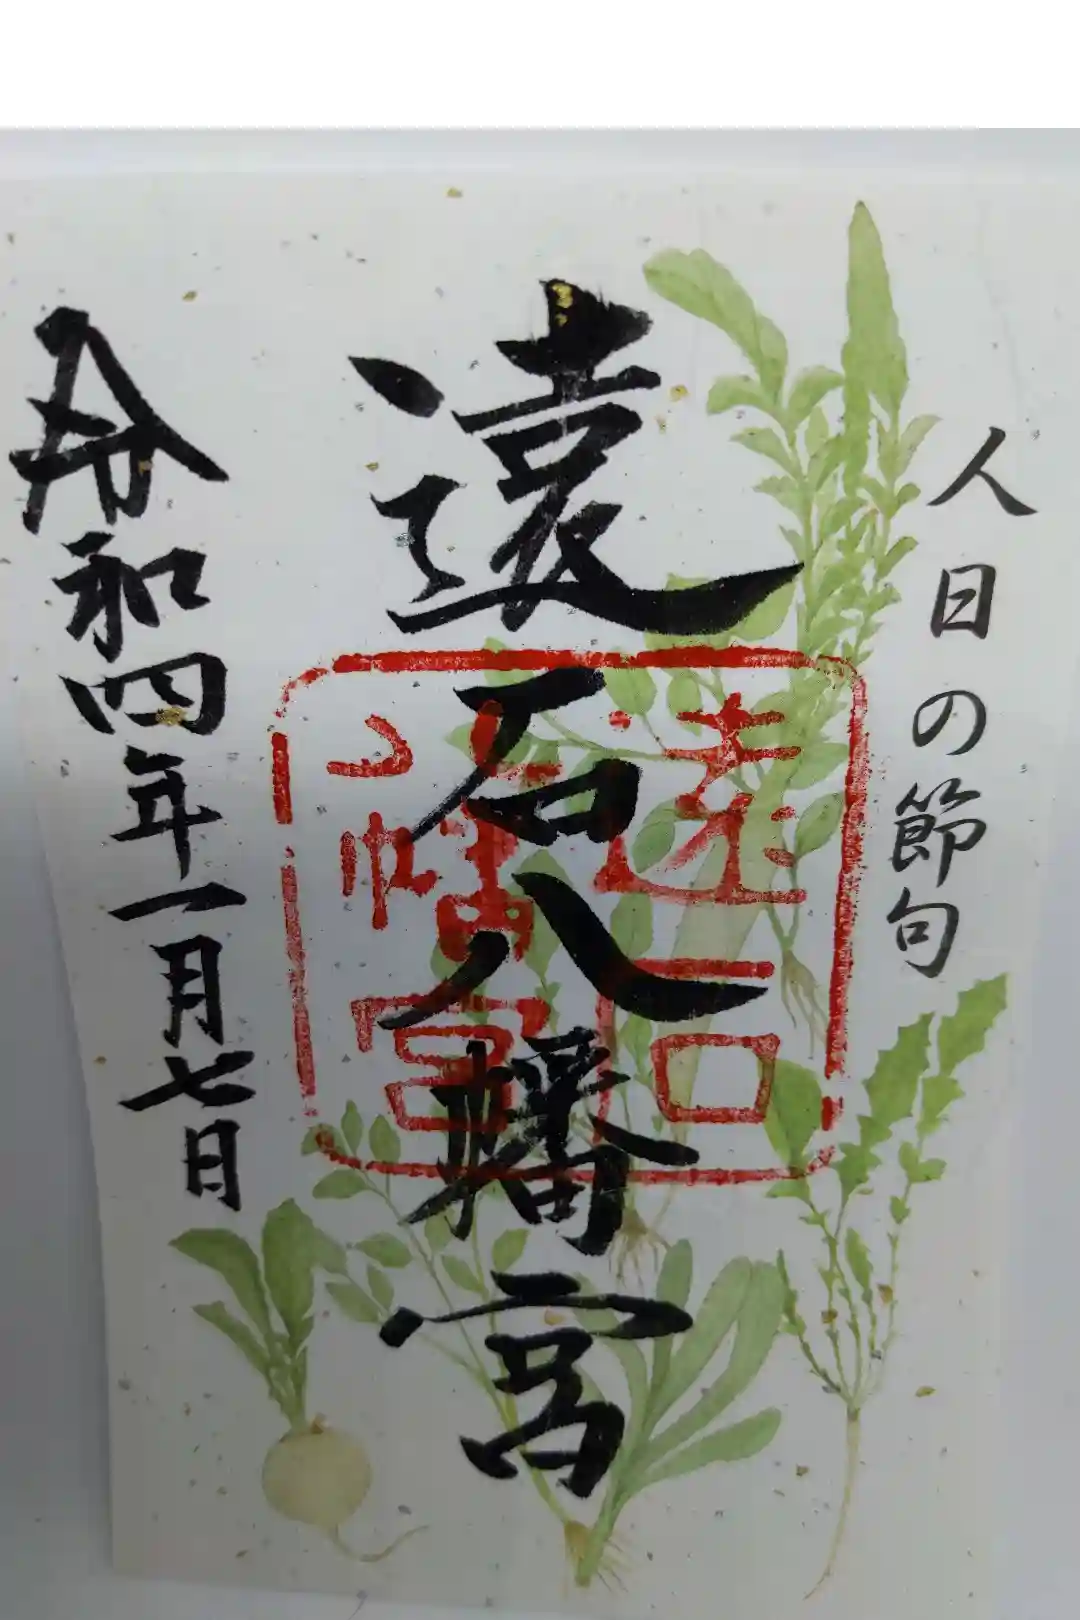 人日の節句
遠石八幡宮
遠石
八幡宮
令和四年一月七日